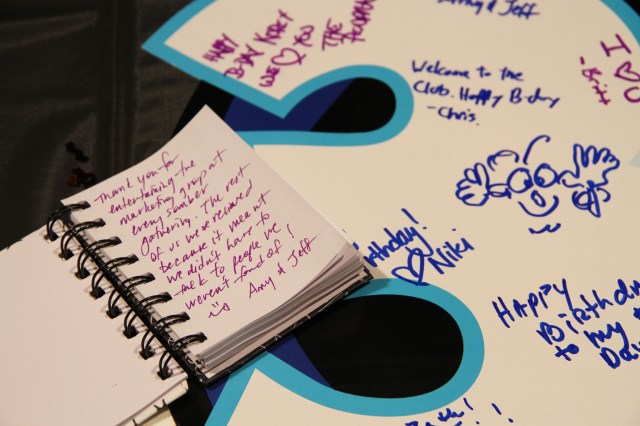 Amy & Jeff
HAPPY
B-DAY
WE ♡ YOU
THE
I ♡
Welcome to the
Club. Happy B-day
-Chris.
Birthday!
♡ Niki
HAPPY
Birthday
to my
Thank you for
entertaining the
marketing group at
every somber
gathering. The rest
of us were relieved
because it meant
we didn't have to
talk to people we
weren't fond of!
Amy & Jeff